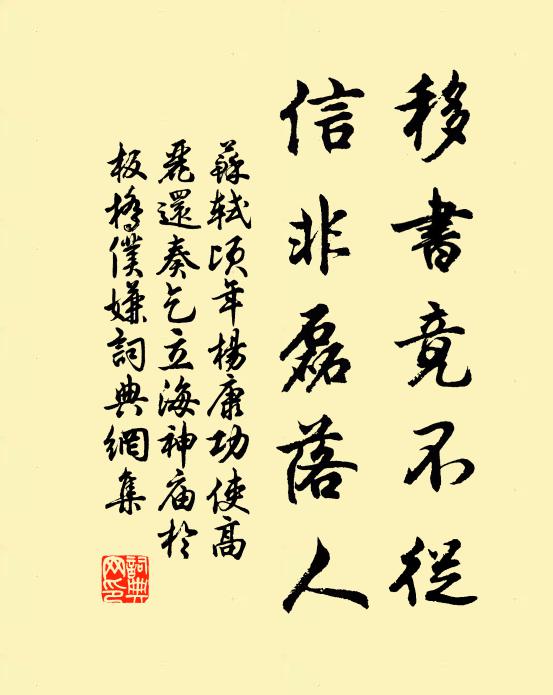 移書竟不從
信非磊落人
蘇軾頃年楊康功使高
麗還奏乞立海神廟於
板橋僕嫌詞典網集
詞典
网印